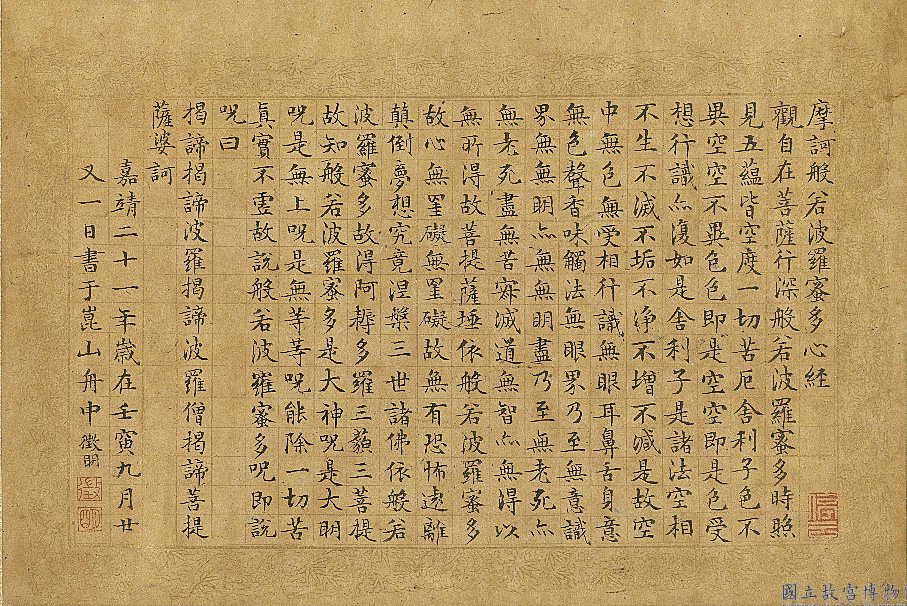 摩訶般若波羅蜜多心經
觀自在菩薩行深般若波羅蜜多時照
見五蘊皆空度一切苦厄舍利子色不
異空空不異色色即是空空即是色受
想行識亦復如是舍利子是諸法空相
不生不滅不垢不淨不增不減是故空
中無色無受想行識無眼耳鼻舌身意
無色聲香味觸法無眼界乃至無意識
界無無明亦無無明盡乃至無老死亦
無老死盡無苦寂滅道無智亦無得以
無所得故菩提薩埵依般若波羅蜜多
故心無罣礙無罣礙故無有恐怖遠離
顛倒夢想究竟涅槃三世諸佛依般若
波羅蜜多故得阿耨多羅三藐三菩提
故知般若波羅蜜多是大神呪是大明
呪是無上呪是無等等呪能除一切苦
真實不虛故說般若波羅蜜多呪即說
呪曰
揭諦揭諦波羅揭諦波羅僧揭諦菩提
薩婆訶
嘉靖二十一年歲在壬寅九月廿
又一日書于崑山舟中徵明
國立故宮博物